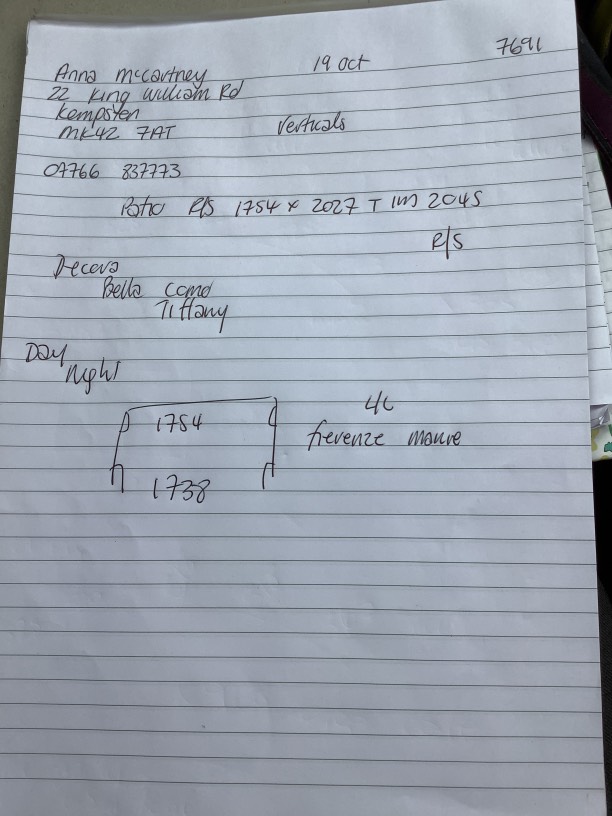 7691
Anna McCartney 19 Oct
22 King William Rd
Kempston
MK42 7AT Verticals
07766 837773
Patio R/S 1754 x 2027 T 1m 2045
R/S
Decora
Bella Como
Tiffany
Day
Night
1754 4C
firenze mauve
1738